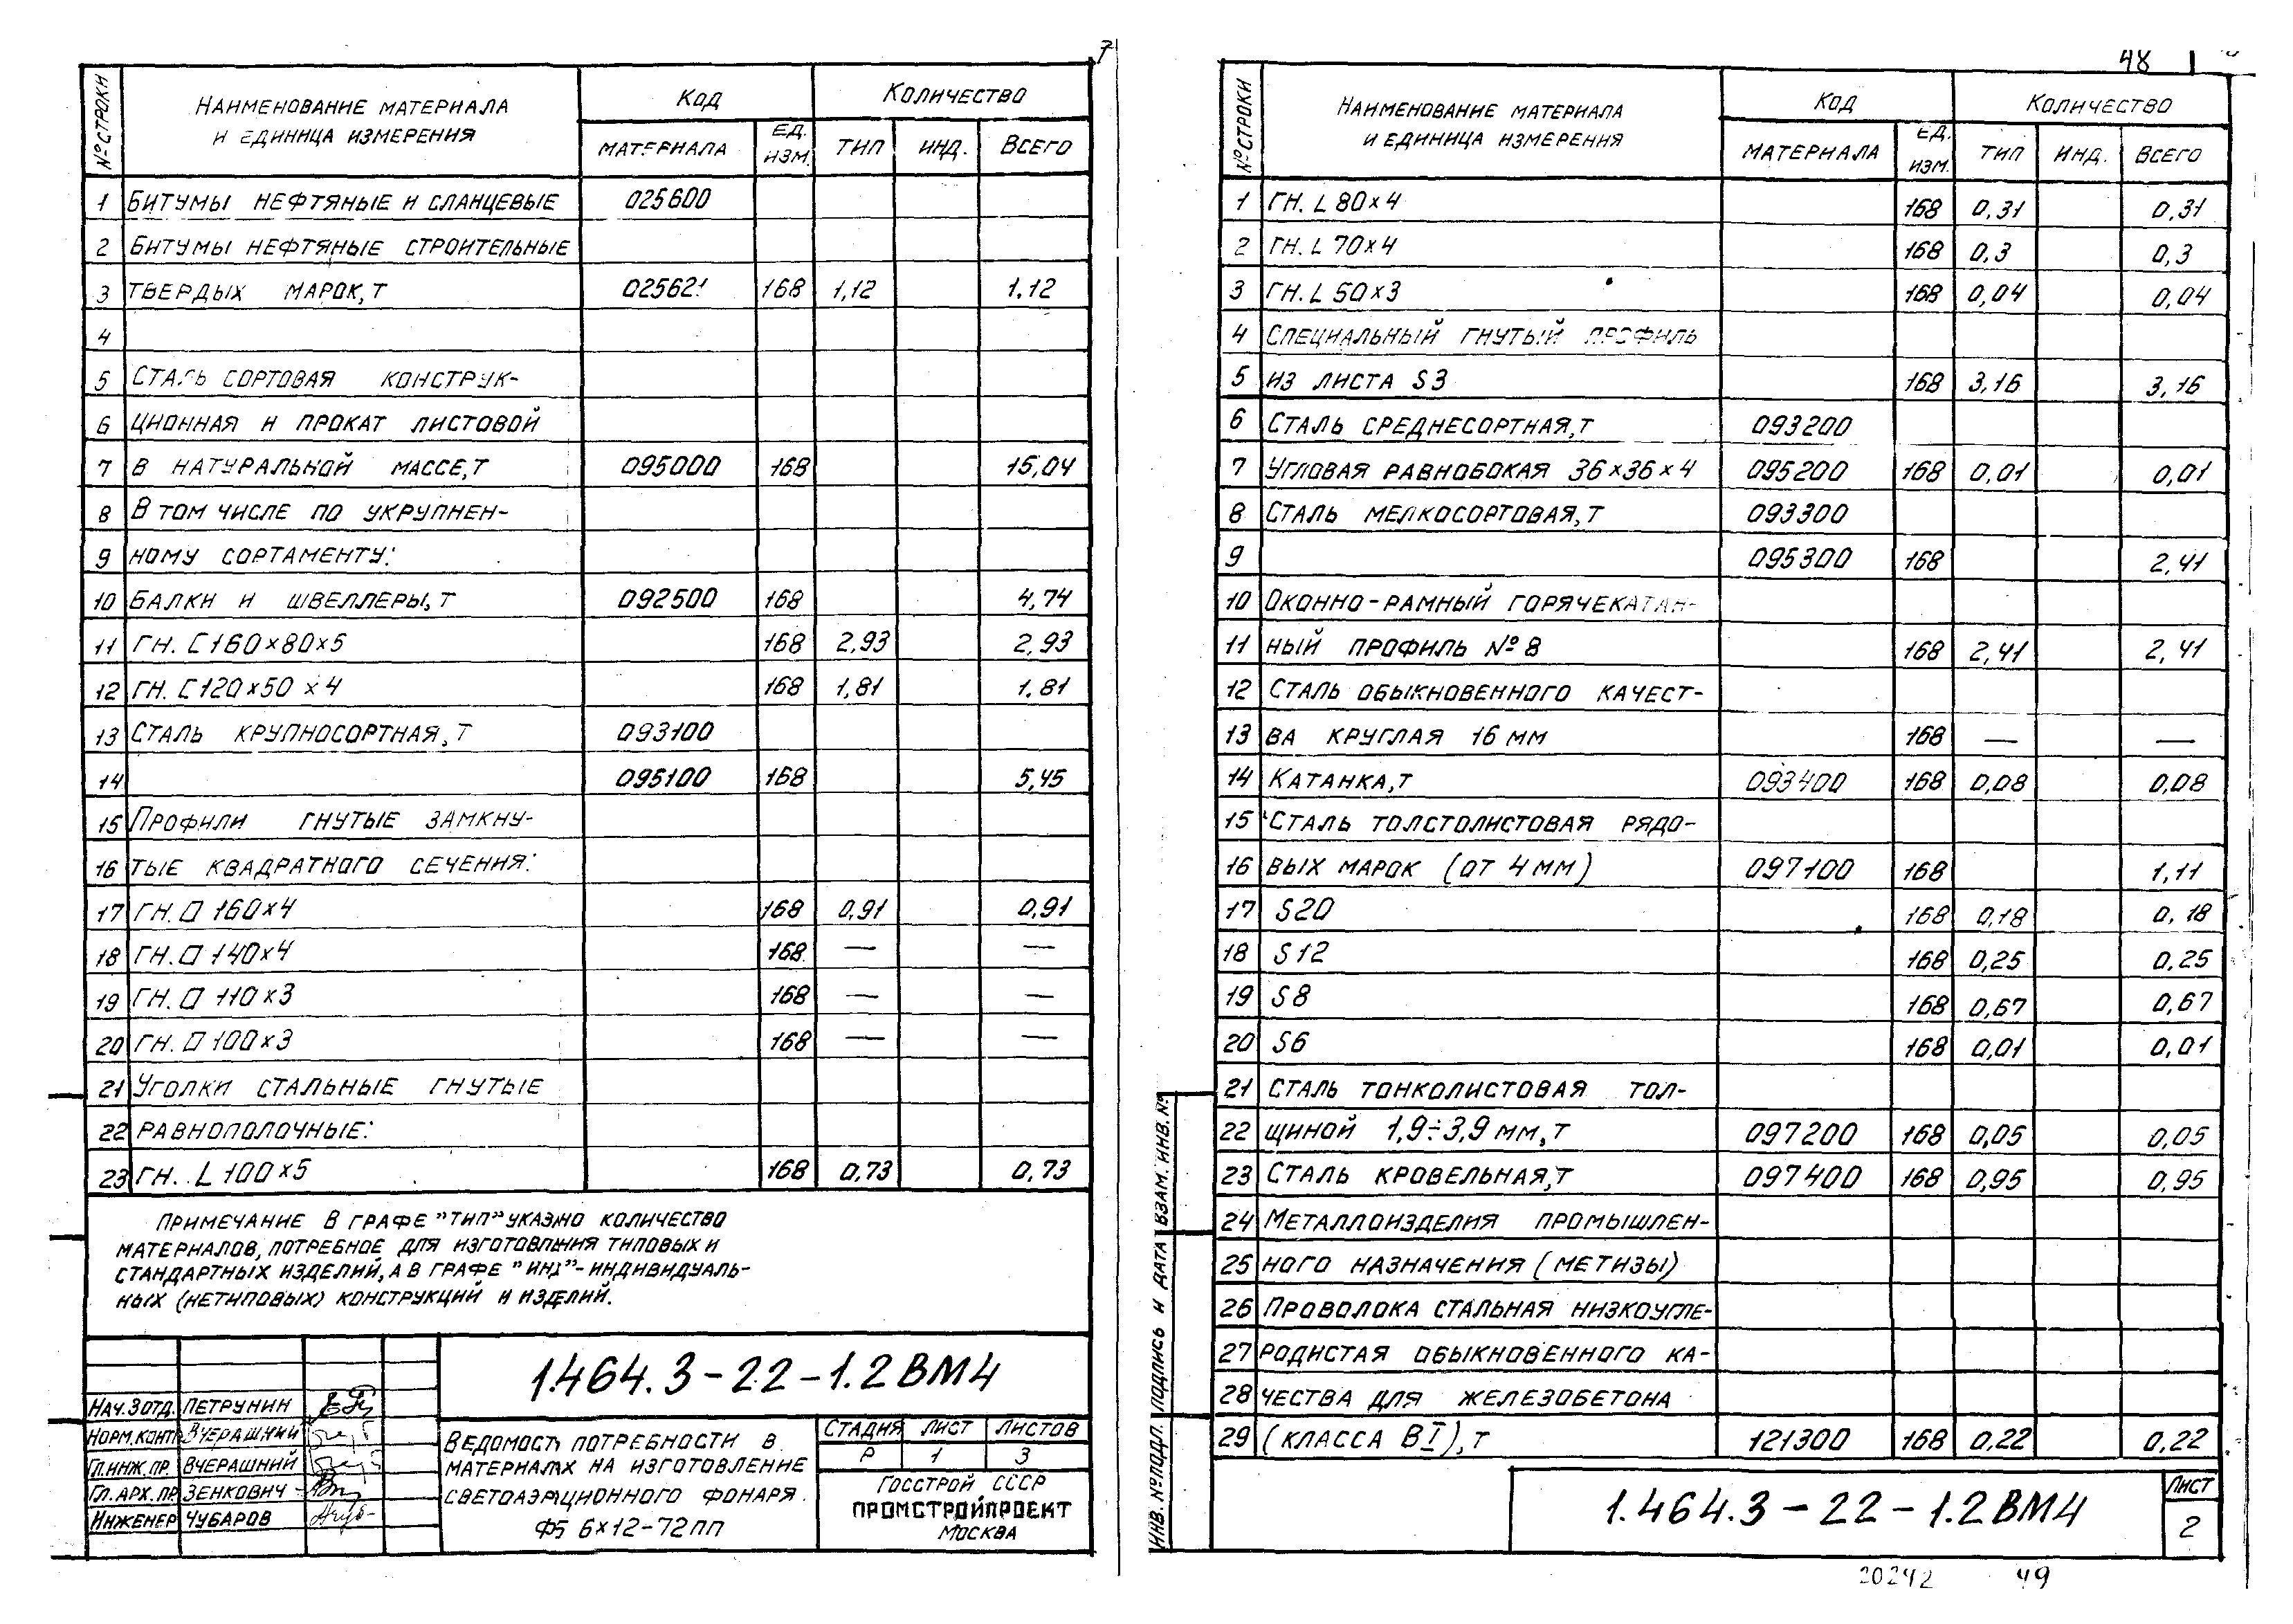 7
№ СТРОКИ
НАИМЕНОВАНИЕ МАТЕРИАЛА
И ЕДИНИЦА ИЗМЕРЕНИЯ
КОД
КОЛИЧЕСТВО
МАТЕРИАЛА
ЕД. ИЗМ.
ТИП
ИНД.
ВСЕГО
1 БИТУМЫ НЕФТЯНЫЕ И СЛАНЦЕВЫЕ 025600
2 БИТУМЫ НЕФТЯНЫЕ СТРОИТЕЛЬНЫЕ
3 ТВЕРДЫХ МАРОК, Т 025621 168 1,12 1,12
4
5 СТАЛЬ СОРТОВАЯ КОНСТРУК-
6 ЦИОННАЯ И ПРОКАТ ЛИСТОВОЙ
7 В НАТУРАЛЬНОЙ МАССЕ, Т 095000 168 15,04
8 В ТОМ ЧИСЛЕ ПО УКРУПНЕН-
9 НОМУ СОРТАМЕНТУ:
10 БАЛКИ И ШВЕЛЛЕРЫ, Т 092500 168 4,74
11 ГН. [ 160×80×5 168 2,93 2,93
12 ГН. [ 120×50×4 168 1,81 1,81
13 СТАЛЬ КРУПНОСОРТНАЯ, Т 093100
14 095100 168 5,45
15 ПРОФИЛИ ГНУТЫЕ ЗАМКНУ-
16 ТЫЕ КВАДРАТНОГО СЕЧЕНИЯ:
17 ГН. □ 160×4 168 0,91 0,91
18 ГН. □ 140×4 168 — —
19 ГН. □ 110×3 168 — —
20 ГН. □ 100×3 168 — —
21 УГОЛКИ СТАЛЬНЫЕ ГНУТЫЕ
22 РАВНОПОЛОЧНЫЕ:
23 ГН. L 100×5 168 0,73 0,73
ПРИМЕЧАНИЕ В ГРАФЕ "ТИП" УКАЗАНО КОЛИЧЕСТВО
МАТЕРИАЛОВ, ПОТРЕБНОЕ ДЛЯ ИЗГОТОВЛЕНИЯ ТИПОВЫХ И
СТАНДАРТНЫХ ИЗДЕЛИЙ, А В ГРАФЕ "ИНД" - ИНДИВИДУАЛЬ-
НЫХ (НЕТИПОВЫХ) КОНСТРУКЦИЙ И ИЗДЕЛИЙ.
1.464.3-22-1.2ВМ4
НАЧ.ЗОТД. ПЕТРУНИН
НОРМ.КОНТР ВЧЕРАШНИЙ
ГЛ.ИНЖ.ПР. ВЧЕРАШНИЙ
ГЛ.АРХ.ПР ЗЕНКОВИЧ
ИНЖЕНЕР ЧУБАРОВ
ВЕДОМОСТЬ ПОТРЕБНОСТИ В
МАТЕРИАЛАХ НА ИЗГОТОВЛЕНИЕ
СВЕТОАЭРАЦИОННОГО ФОНАРЯ
Ф5 6×12-72ПП
СТАДИЯ ЛИСТ ЛИСТОВ
Р 1 3
ГОССТРОЙ СССР
ПРОМСТРОЙПРОЕКТ
МОСКВА
48
№ СТРОКИ
НАИМЕНОВАНИЕ МАТЕРИАЛА
И ЕДИНИЦА ИЗМЕРЕНИЯ
КОД
КОЛИЧЕСТВО
МАТЕРИАЛА
ЕД. ИЗМ.
ТИП
ИНД.
ВСЕГО
1 ГН. L 80×4 168 0,31 0,31
2 ГН. L 70×4 168 0,3 0,3
3 ГН. L 50×3 168 0,04 0,04
4 СПЕЦИАЛЬНЫЙ ГНУТЫЙ ПРОФИЛЬ
5 ИЗ ЛИСТА S3 168 3,16 3,16
6 СТАЛЬ СРЕДНЕСОРТНАЯ, Т 093200
7 УГЛОВАЯ РАВНОБОКАЯ 36×36×4 095200 168 0,01 0,01
8 СТАЛЬ МЕЛКОСОРТОВАЯ, Т 093300
9 095300 168 2,41
10 ОКОННО-РАМНЫЙ ГОРЯЧЕКАТАН-
11 НЫЙ ПРОФИЛЬ №8 168 2,41 2,41
12 СТАЛЬ ОБЫКНОВЕННОГО КАЧЕСТ-
13 ВА КРУГЛАЯ 16 ММ 168 — —
14 КАТАНКА, Т 093400 168 0,08 0,08
15 СТАЛЬ ТОЛСТОЛИСТОВАЯ РЯДО-
16 ВЫХ МАРОК (ОТ 4 ММ) 097100 168 1,11
17 S20 168 0,18 0,18
18 S12 168 0,25 0,25
19 S8 168 0,67 0,67
20 S6 168 0,01 0,01
21 СТАЛЬ ТОНКОЛИСТОВАЯ ТОЛ-
22 ЩИНОЙ 1,9÷3,9 ММ, Т 097200 168 0,05 0,05
23 СТАЛЬ КРОВЕЛЬНАЯ, Т 097400 168 0,95 0,95
24 МЕТАЛЛОИЗДЕЛИЯ ПРОМЫШЛЕН-
25 НОГО НАЗНАЧЕНИЯ (МЕТИЗЫ)
26 ПРОВОЛОКА СТАЛЬНАЯ НИЗКОУГЛЕ-
27 РОДИСТАЯ ОБЫКНОВЕННОГО КА-
28 ЧЕСТВА ДЛЯ ЖЕЛЕЗОБЕТОНА
29 (КЛАССА ВI), Т 121300 168 0,22 0,22
ИНВ. № ПОДЛ. ПОДПИСЬ И ДАТА ВЗАМ. ИНВ. №
1.464.3-22-1.2ВМ4
ЛИСТ
2
20242 49